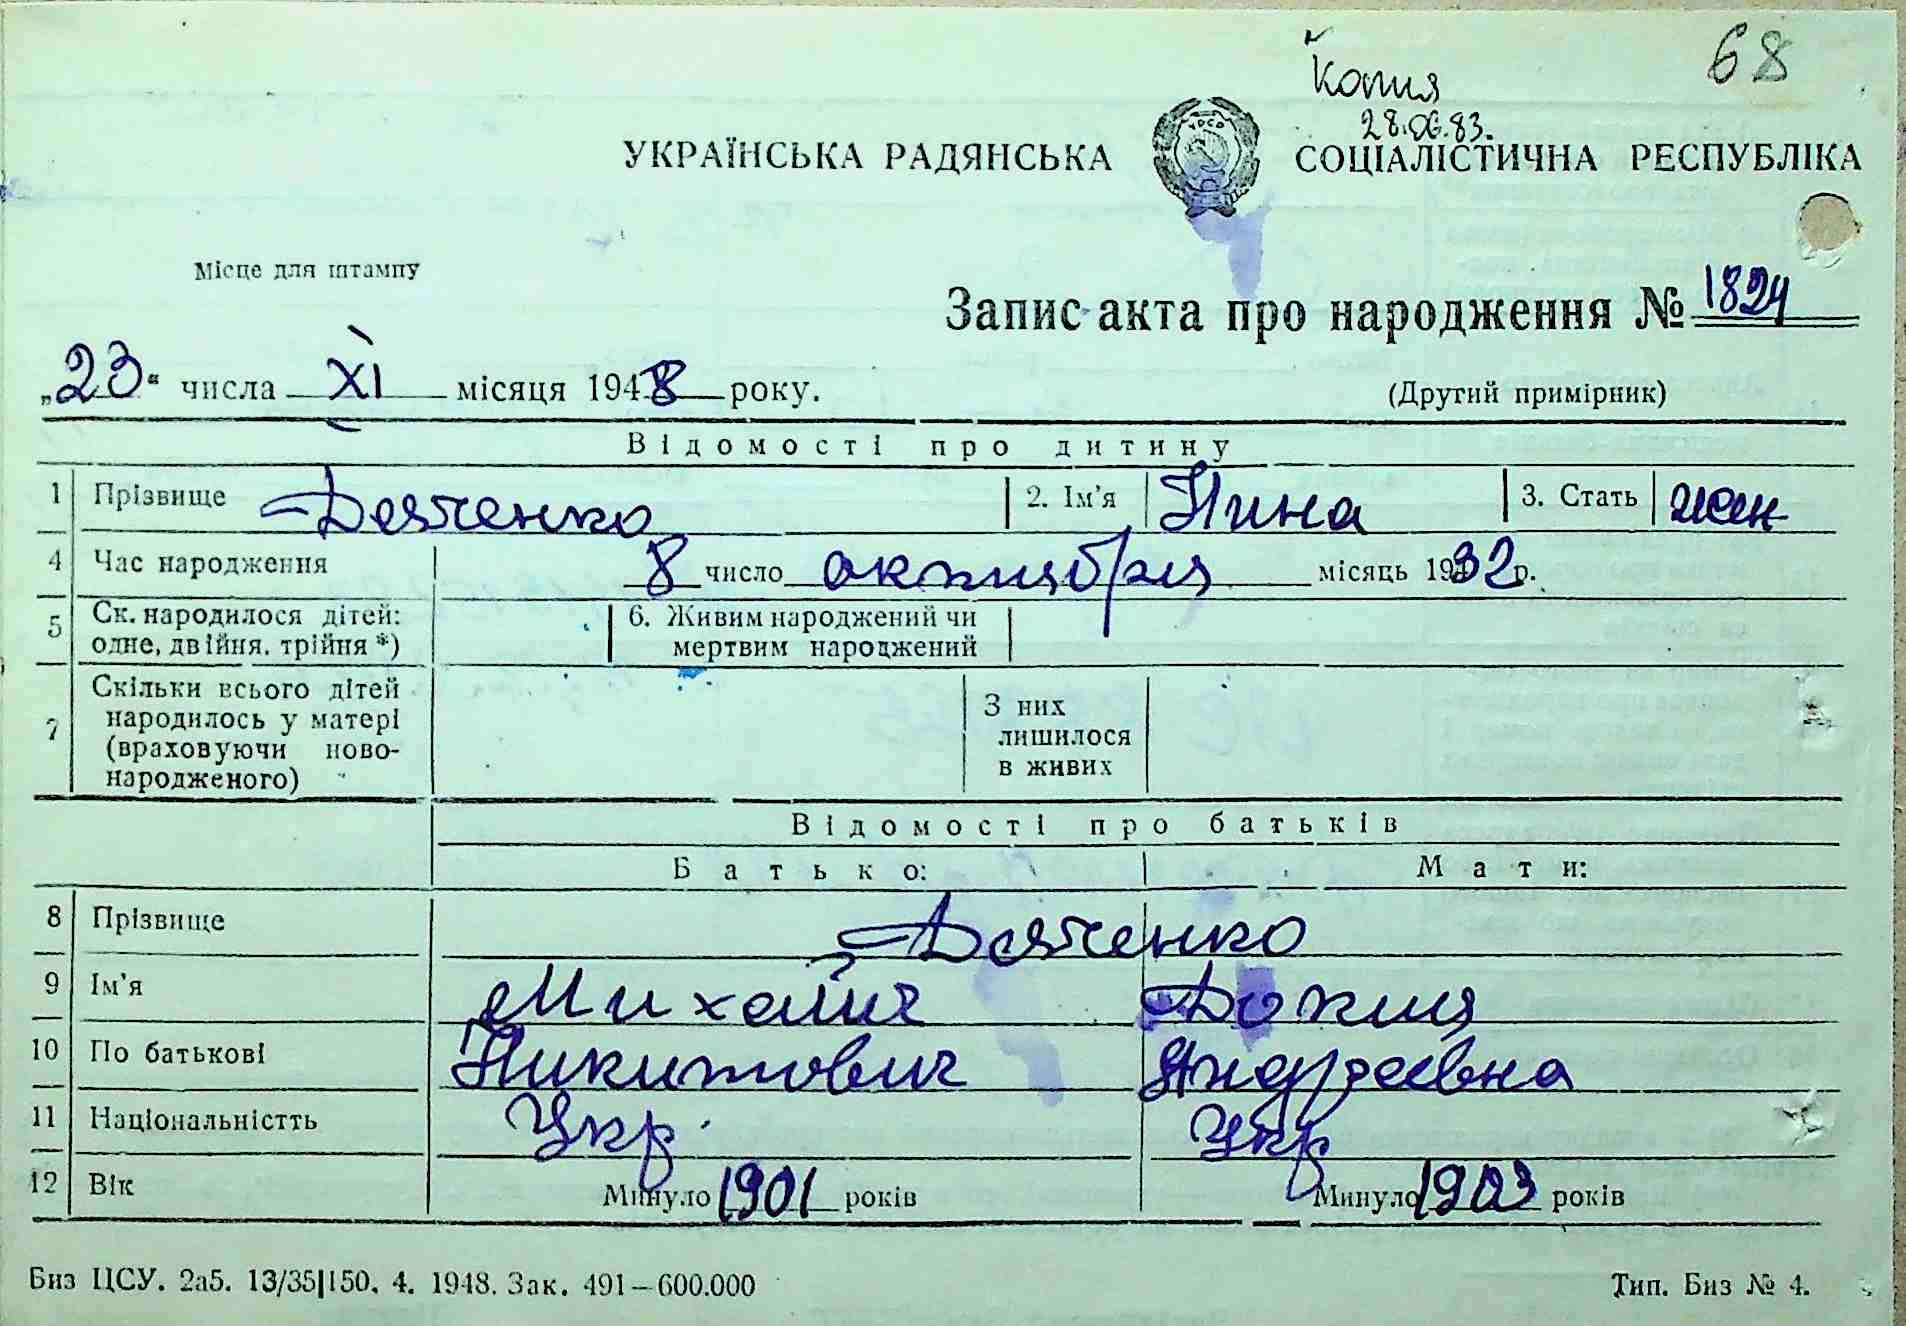 68
Копия
28.06.83.
УКРАЇНСЬКА РАДЯНСЬКА СОЦІАЛІСТИЧНА РЕСПУБЛІКА
Місце для штампу
Запис акта про народження № 1824
„23“ числа XI місяця 1948 року.
(Другий примірник)
Відомості про дитину
1 Прізвище Дятченко 2. Ім'я Нина 3. Стать жен
4 Час народження 8 число октября місяць 1932 р.
5 Ск. народилося дітей: одне, двійня, трійня *) 6. Живим народжений чи мертвим народжений
7 Скільки всього дітей народилось у матері (враховуючи ново-народженого) З них лишилося в живих
Відомості про батьків
Батько: Мати:
8 Прізвище Дятченко
9 Ім'я Михаил Докия
10 По батькові Никитович Андреевна
11 Національністть Укр. Укр
12 Вік Минуло 1901 років Минуло 1903 років
Биз ЦСУ. 2а5. 13/35|150. 4. 1948. Зак. 491—600.000 Тип. Биз № 4.